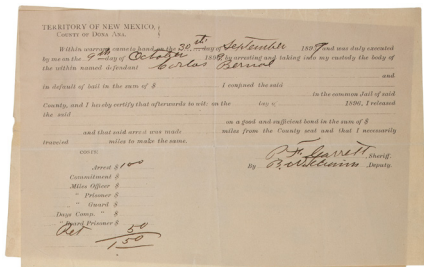 TERRITORY OF NEW MEXICO,
COUNTY OF DONA ANA.
Within warrant came to hand on the 30th day of September 1897 and was duly executed
by me on the 9th day of October 1897 by arresting and taking into my custody the body of
the within named defendant Carlos Bernal
and
in default of bail in the sum of $ I confined the said
in the common Jail of said
County, and I hereby certify that afterwards to wit: on the day of 1896, I released
the said
on a good and sufficient bond in the sum of $
and that said arrest was made miles from the County seat and that I necessarily
traveled miles to make the same.
COSTS.
Arrest $ 1.00
Commitment $
Miles Officer $
" Prisoner $
" Guard $
Days Comp. " $
" Board Prisoner $
Ret 50
1.50
P. F. Garrett, Sheriff.
By B. Williams, Deputy.